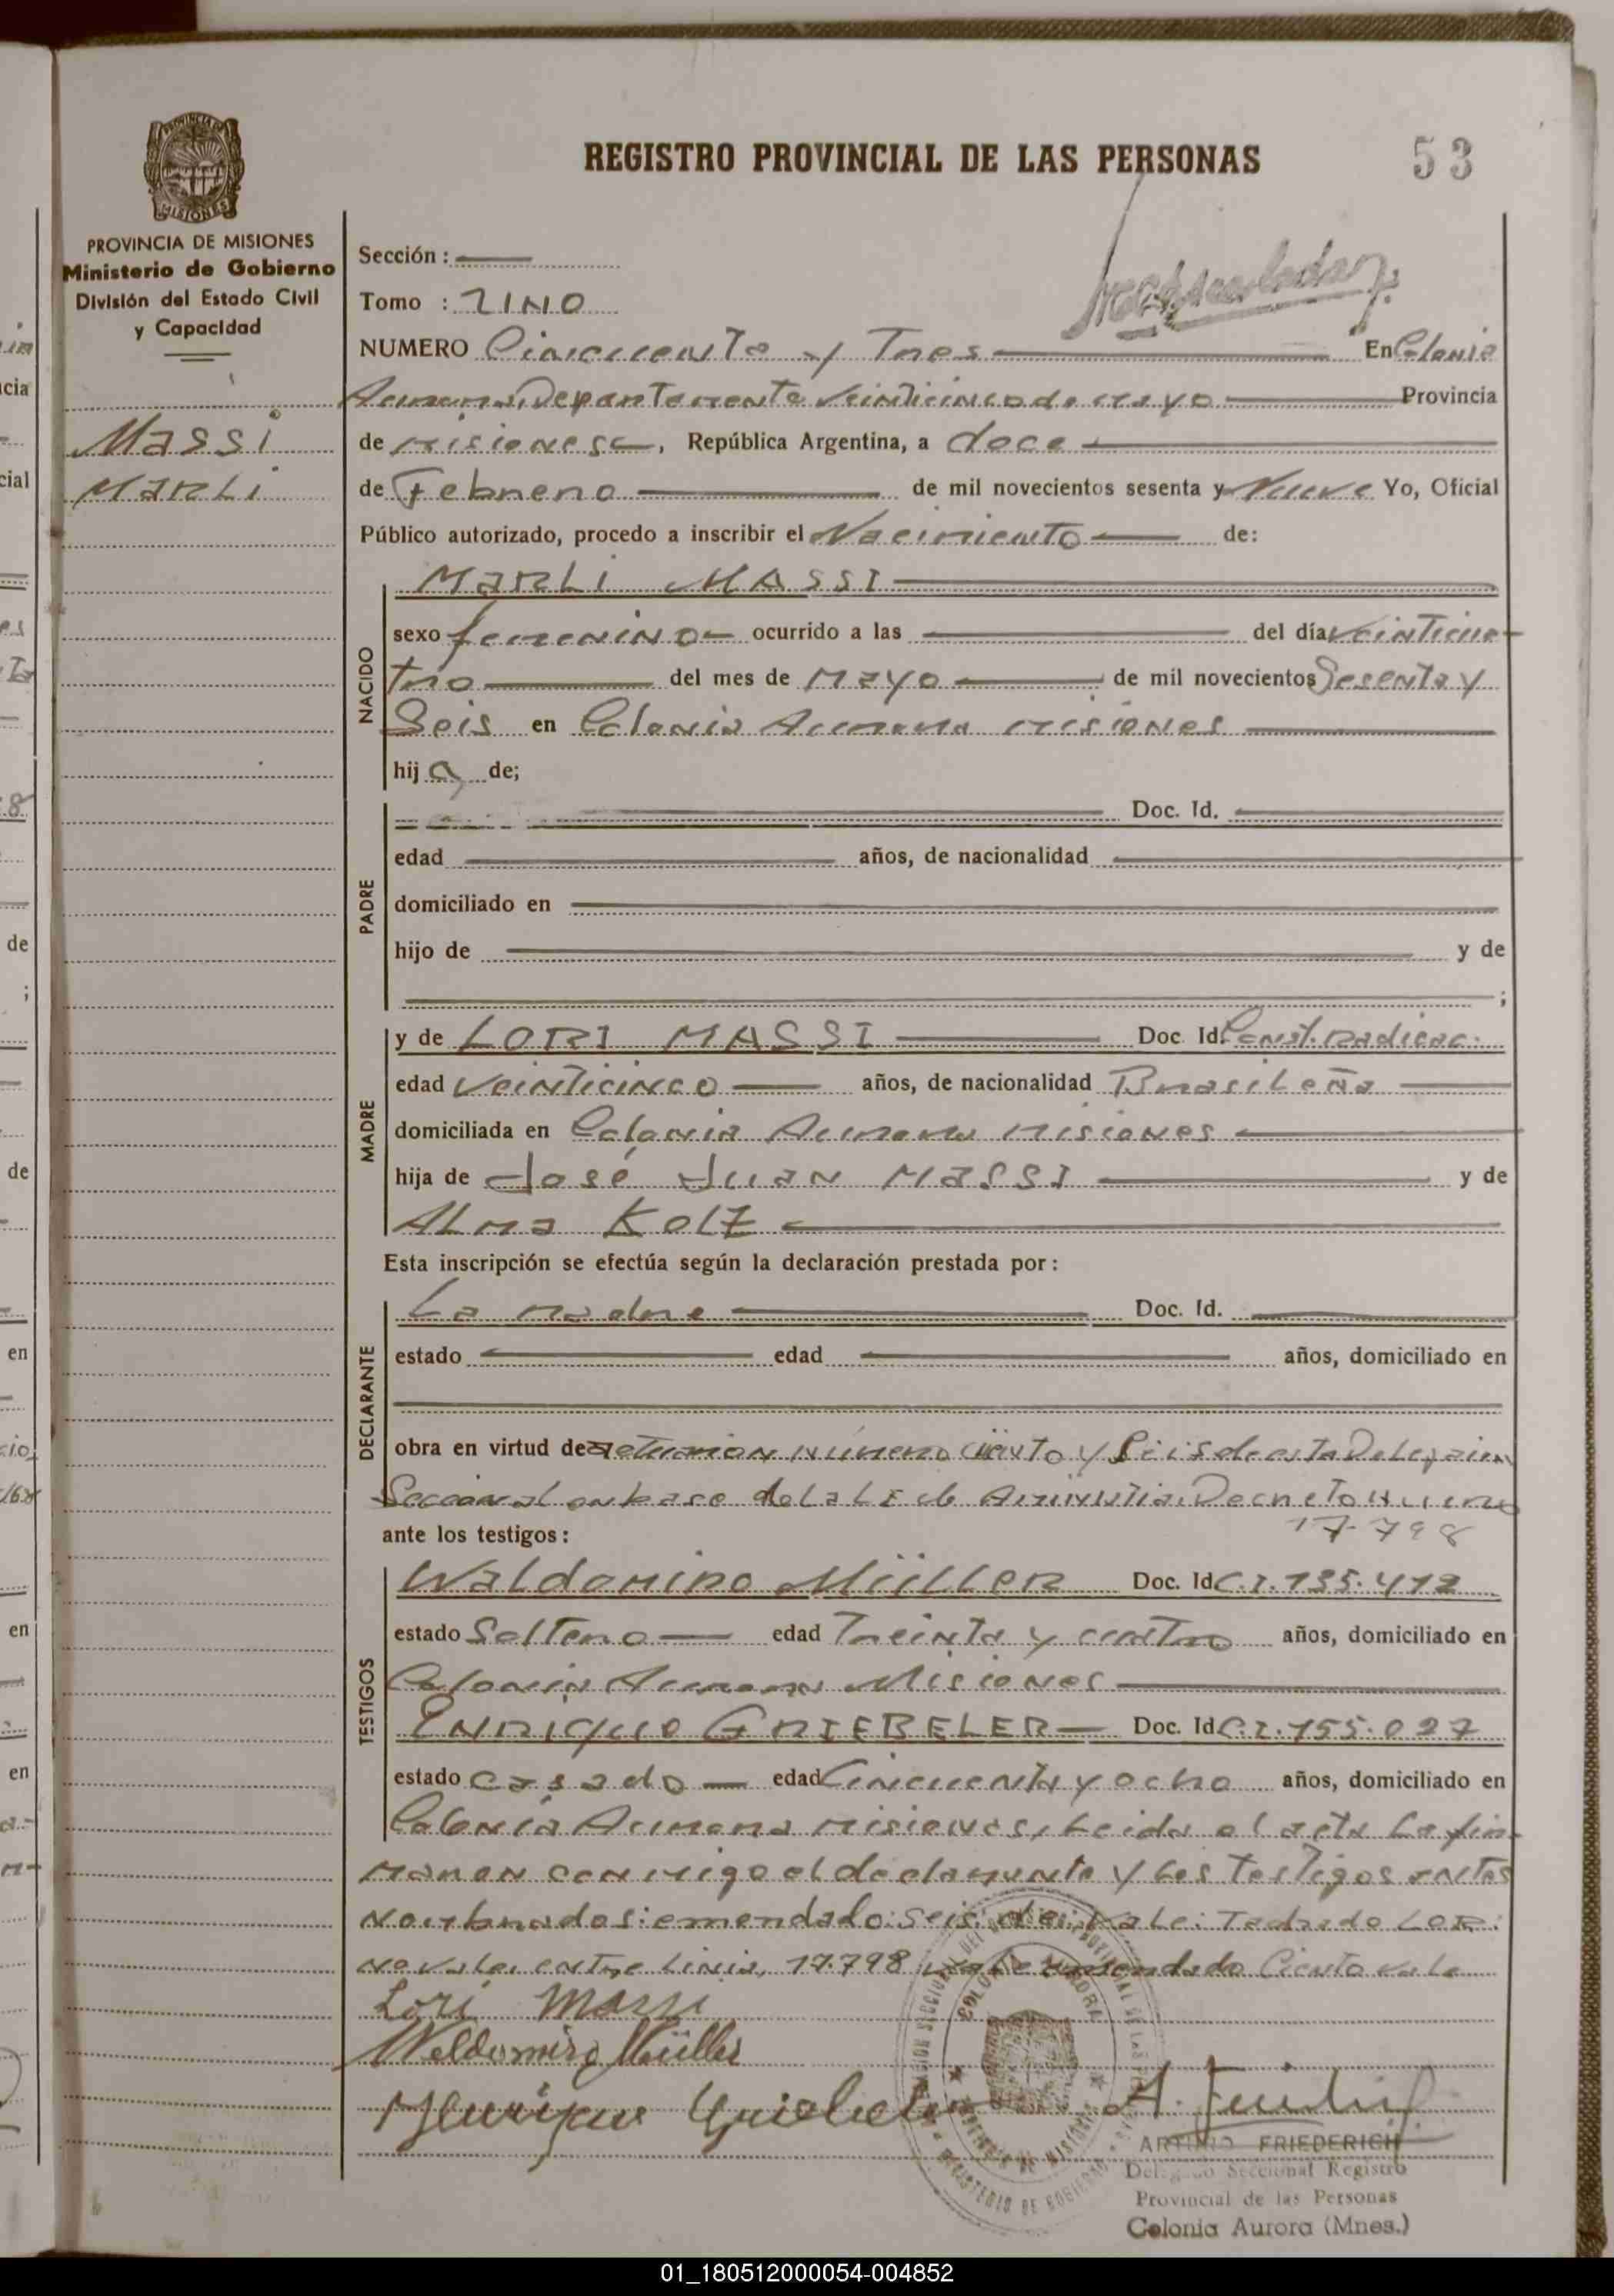 REGISTRO PROVINCIAL DE LAS PERSONAS
53
PROVINCIA DE MISIONES
MISIONES
PROVINCIA DE MISIONES
Ministerio de Gobierno
División del Estado Civil
y Capacidad
Massi
Marli
Sección :
Tomo : 1INO
NUMERO Cincuenta y Tres En Colonia
Aurora, Departamento Veinticinco de mayo Provincia
de misiones, República Argentina, a doce
de Febrero de mil novecientos sesenta y Nueve Yo, Oficial
Público autorizado, procedo a inscribir el Nacimiento de:
NACIDO
Marli MASSI
sexo femenino ocurrido a las del día veinticua-
tro del mes de Mayo de mil novecientos Sesenta y
Seis en Colonia Aurora misiones
hij a de;
PADRE
Doc. Id.
edad años, de nacionalidad
domiciliado en
hijo de y de
;
MADRE
y de LORI MASSI Doc. Id. Const. Radicac.
edad veinticinco años, de nacionalidad Brasileña
domiciliada en Colonia Aurora misiones
hija de José Juan Massi y de
Alma Kolz
Esta inscripción se efectúa según la declaración prestada por :
DECLARANTE
La madre Doc. Id.
estado edad años, domiciliado en
obra en virtud de actuacion número ciento y Seis de esta Delegacion
Seccional en base de la Lei de Aminitia, Decreto Numero
17.798
ante los testigos :
TESTIGOS
Waldomiro Müller Doc. Id C.I. 135.412
estado Soltero edad Treinta y cuatro años, domiciliado en
Colonia Aurora Misiones
Enrique GRIEBELER Doc. Id C.I. 155.027
estado casado edad Cincuenta y ocho años, domiciliado en
Colonia Aurora misiones, Leida el acta la fir-
maron conmigo el declarante y los testigos antes
nombrados: emendado: seis de: vale: Tachado LOR:
no vale, entre linia, 17.798 vale emendado Ciento vale
Lori Massi
Waldomiro Müller
COLONIA AURORA
ARTURO FRIEDERICH
Delegado Seccional Registro
Provincial de las Personas
Colonia Aurora (Mnes.)
01_180512000054-004852